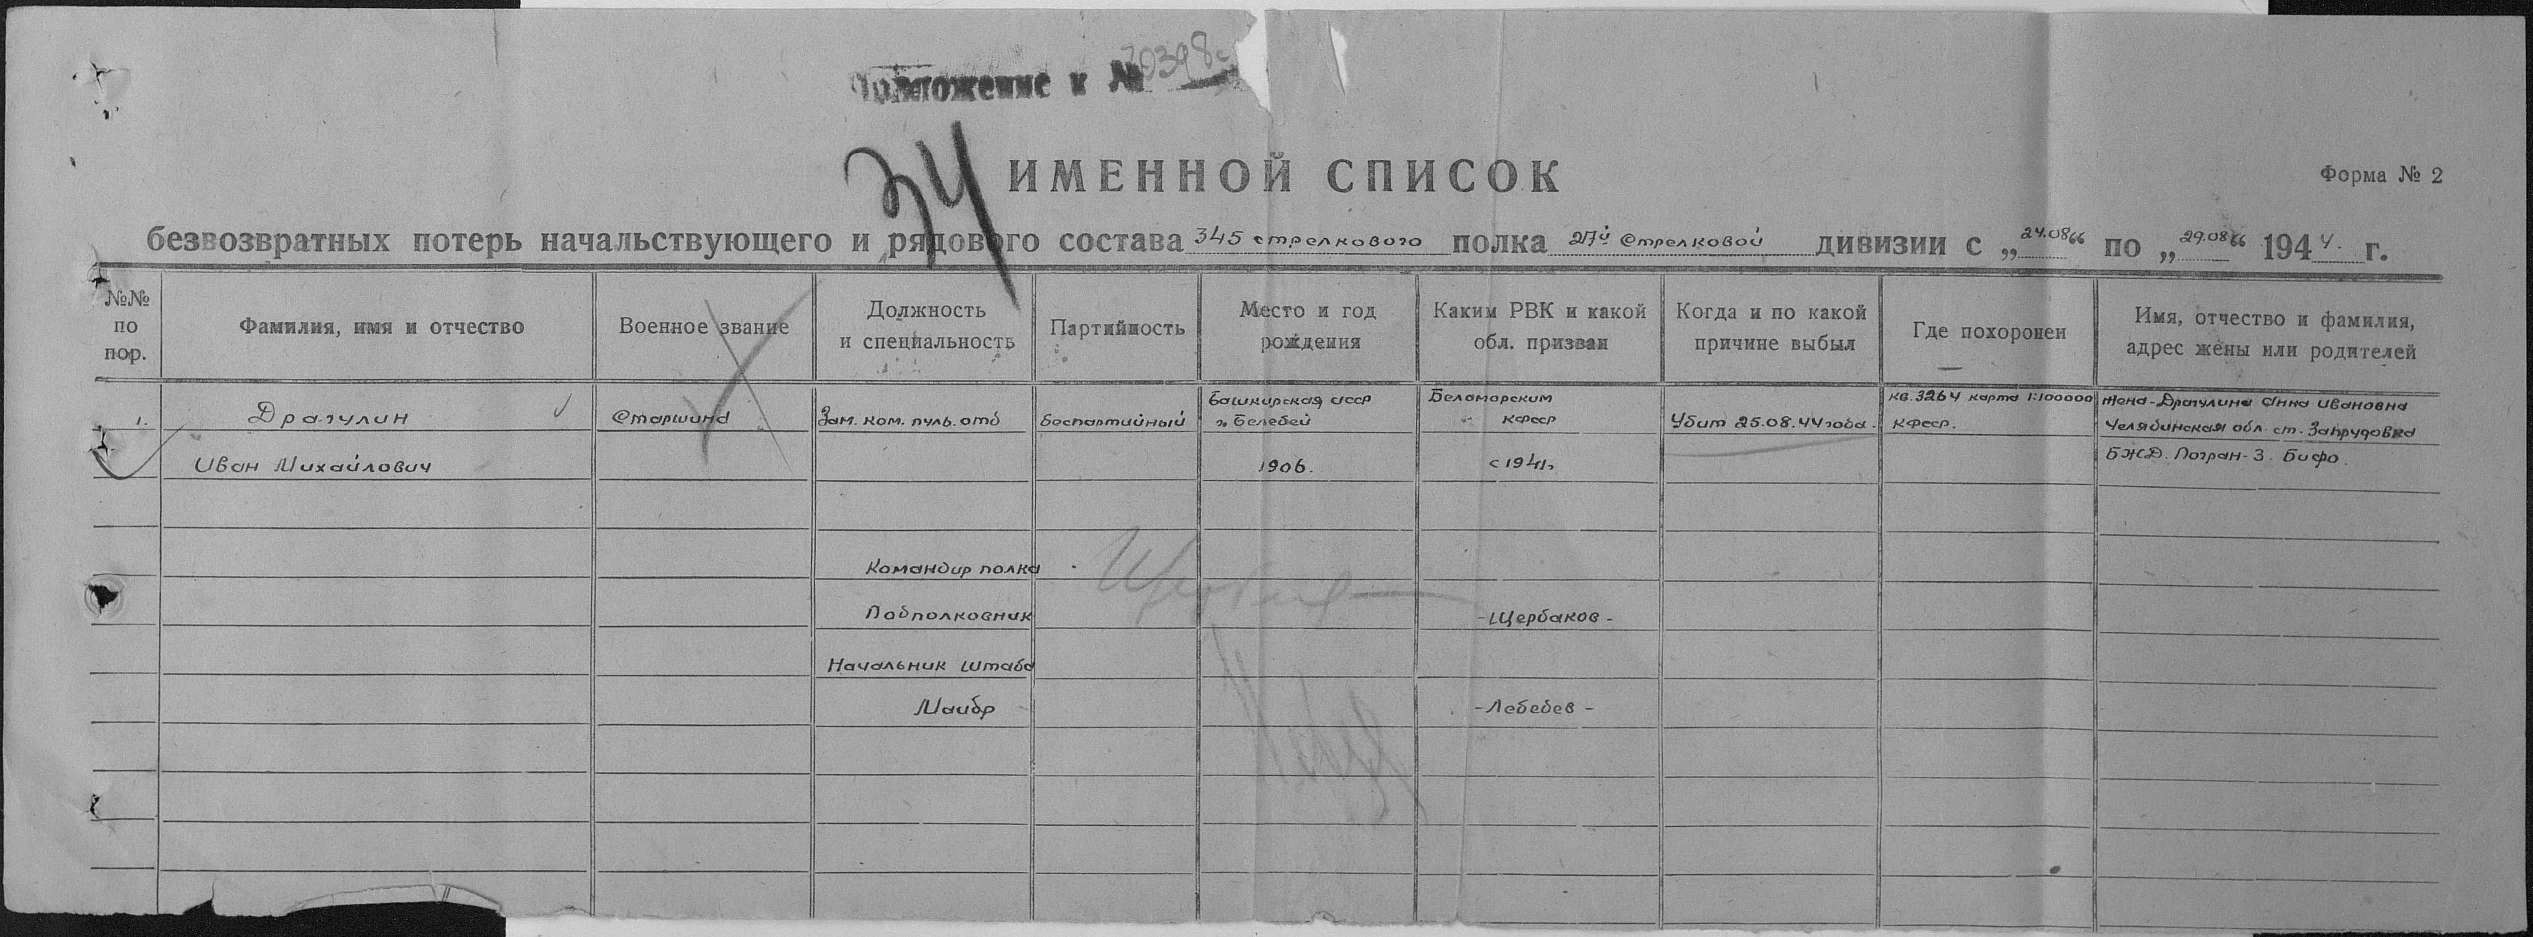 Приложение к № 30398с
34
ИМЕННОЙ СПИСОК
Форма № 2
безвозвратных потерь начальствующего и рядового состава 345 стрелкового полка 27й стрелковой дивизии с „24.08“ по „29.08“ 1944. г.
№№ по пор.
Фамилия, имя и отчество
Военное звание
Должность и специальность
Партийность
Место и год рождения
Каким РВК и какой обл. призван
Когда и по какой причине выбыл
Где похоронен
Имя, отчество и фамилия, адрес жены или родителей
1.
Драгулин
Иван Михайлович
Старшина
Зам. ком. пуль. отд
беспартийный
Башкирская АССР
г. Белебей
1906.
Беломорским
КФССР
с 1941г
Убит 25.08.44 года.
кв. 3264 карта 1:100000
КФССР.
Жена - Драгулина Анна Ивановна
Челябинская обл. ст. Запрудовка
БЖД. Погран-3. Бифо.
Командир полка
Подполковник
-Щербаков-
Начальник штаба
Майор
-Лебедев-